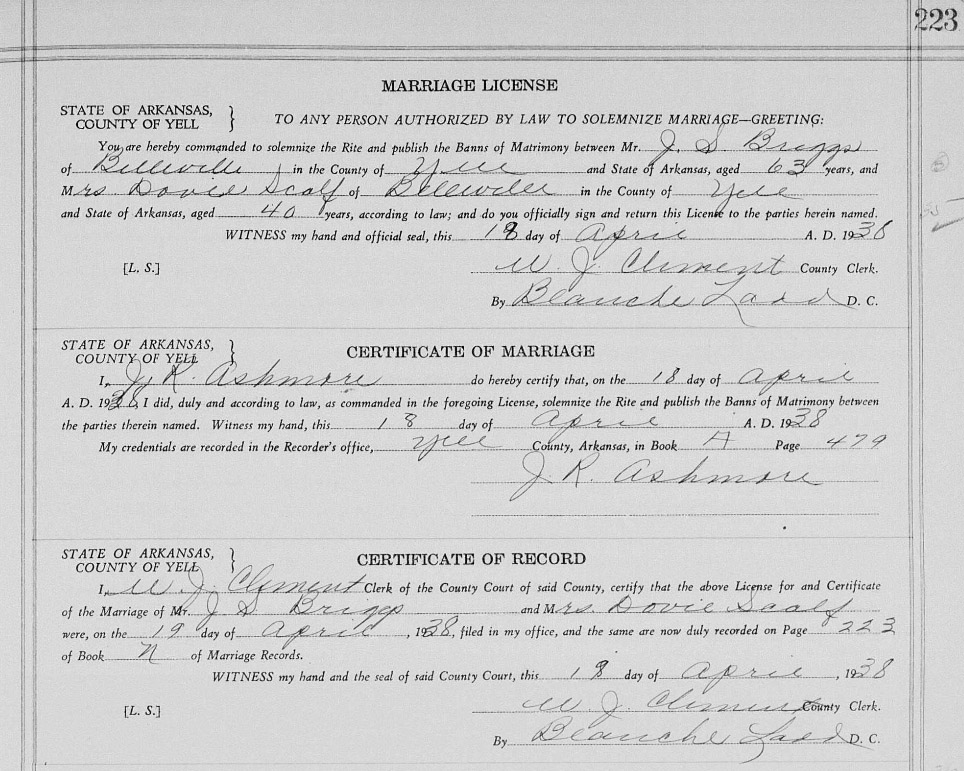 223
MARRIAGE LICENSE
STATE OF ARKANSAS,
COUNTY OF YELL
TO ANY PERSON AUTHORIZED BY LAW TO SOLEMNIZE MARRIAGE—GREETING:
You are hereby commanded to solemnize the Rite and publish the Banns of Matrimony between Mr. J. S. Briggs
of Belleville in the County of Yell and State of Arkansas, aged 63 years, and
Mrs Dovie Scalf of Belleville in the County of Yell
and State of Arkansas, aged 40 years, according to law; and do you officially sign and return this License to the parties herein named.
WITNESS my hand and official seal, this 18 day of April A. D. 1938
[L. S.] W. J. Clement County Clerk.
By Blanche Ladd D. C.
STATE OF ARKANSAS,
COUNTY OF YELL
CERTIFICATE OF MARRIAGE
I, J. R. Ashmore do hereby certify that, on the 18 day of April
A. D. 1938, I did, duly and according to law, as commanded in the foregoing License, solemnize the Rite and publish the Banns of Matrimony between
the parties therein named. Witness my hand, this 18 day of April A. D. 1938
My credentials are recorded in the Recorder's office, Yell County, Arkansas, in Book A Page 479
J. R. Ashmore
STATE OF ARKANSAS,
COUNTY OF YELL
CERTIFICATE OF RECORD
I, W. J. Clement Clerk of the County Court of said County, certify that the above License for and Certificate
of the Marriage of Mr. J. S. Briggs and Mrs. Dovie Scalf
were, on the 19 day of April, 1938, filed in my office, and the same are now duly recorded on Page 223
of Book N of Marriage Records.
WITNESS my hand and the seal of said County Court, this 19 day of April, 1938
[L. S.] W. J. Clement County Clerk.
By Blanche Ladd D. C.